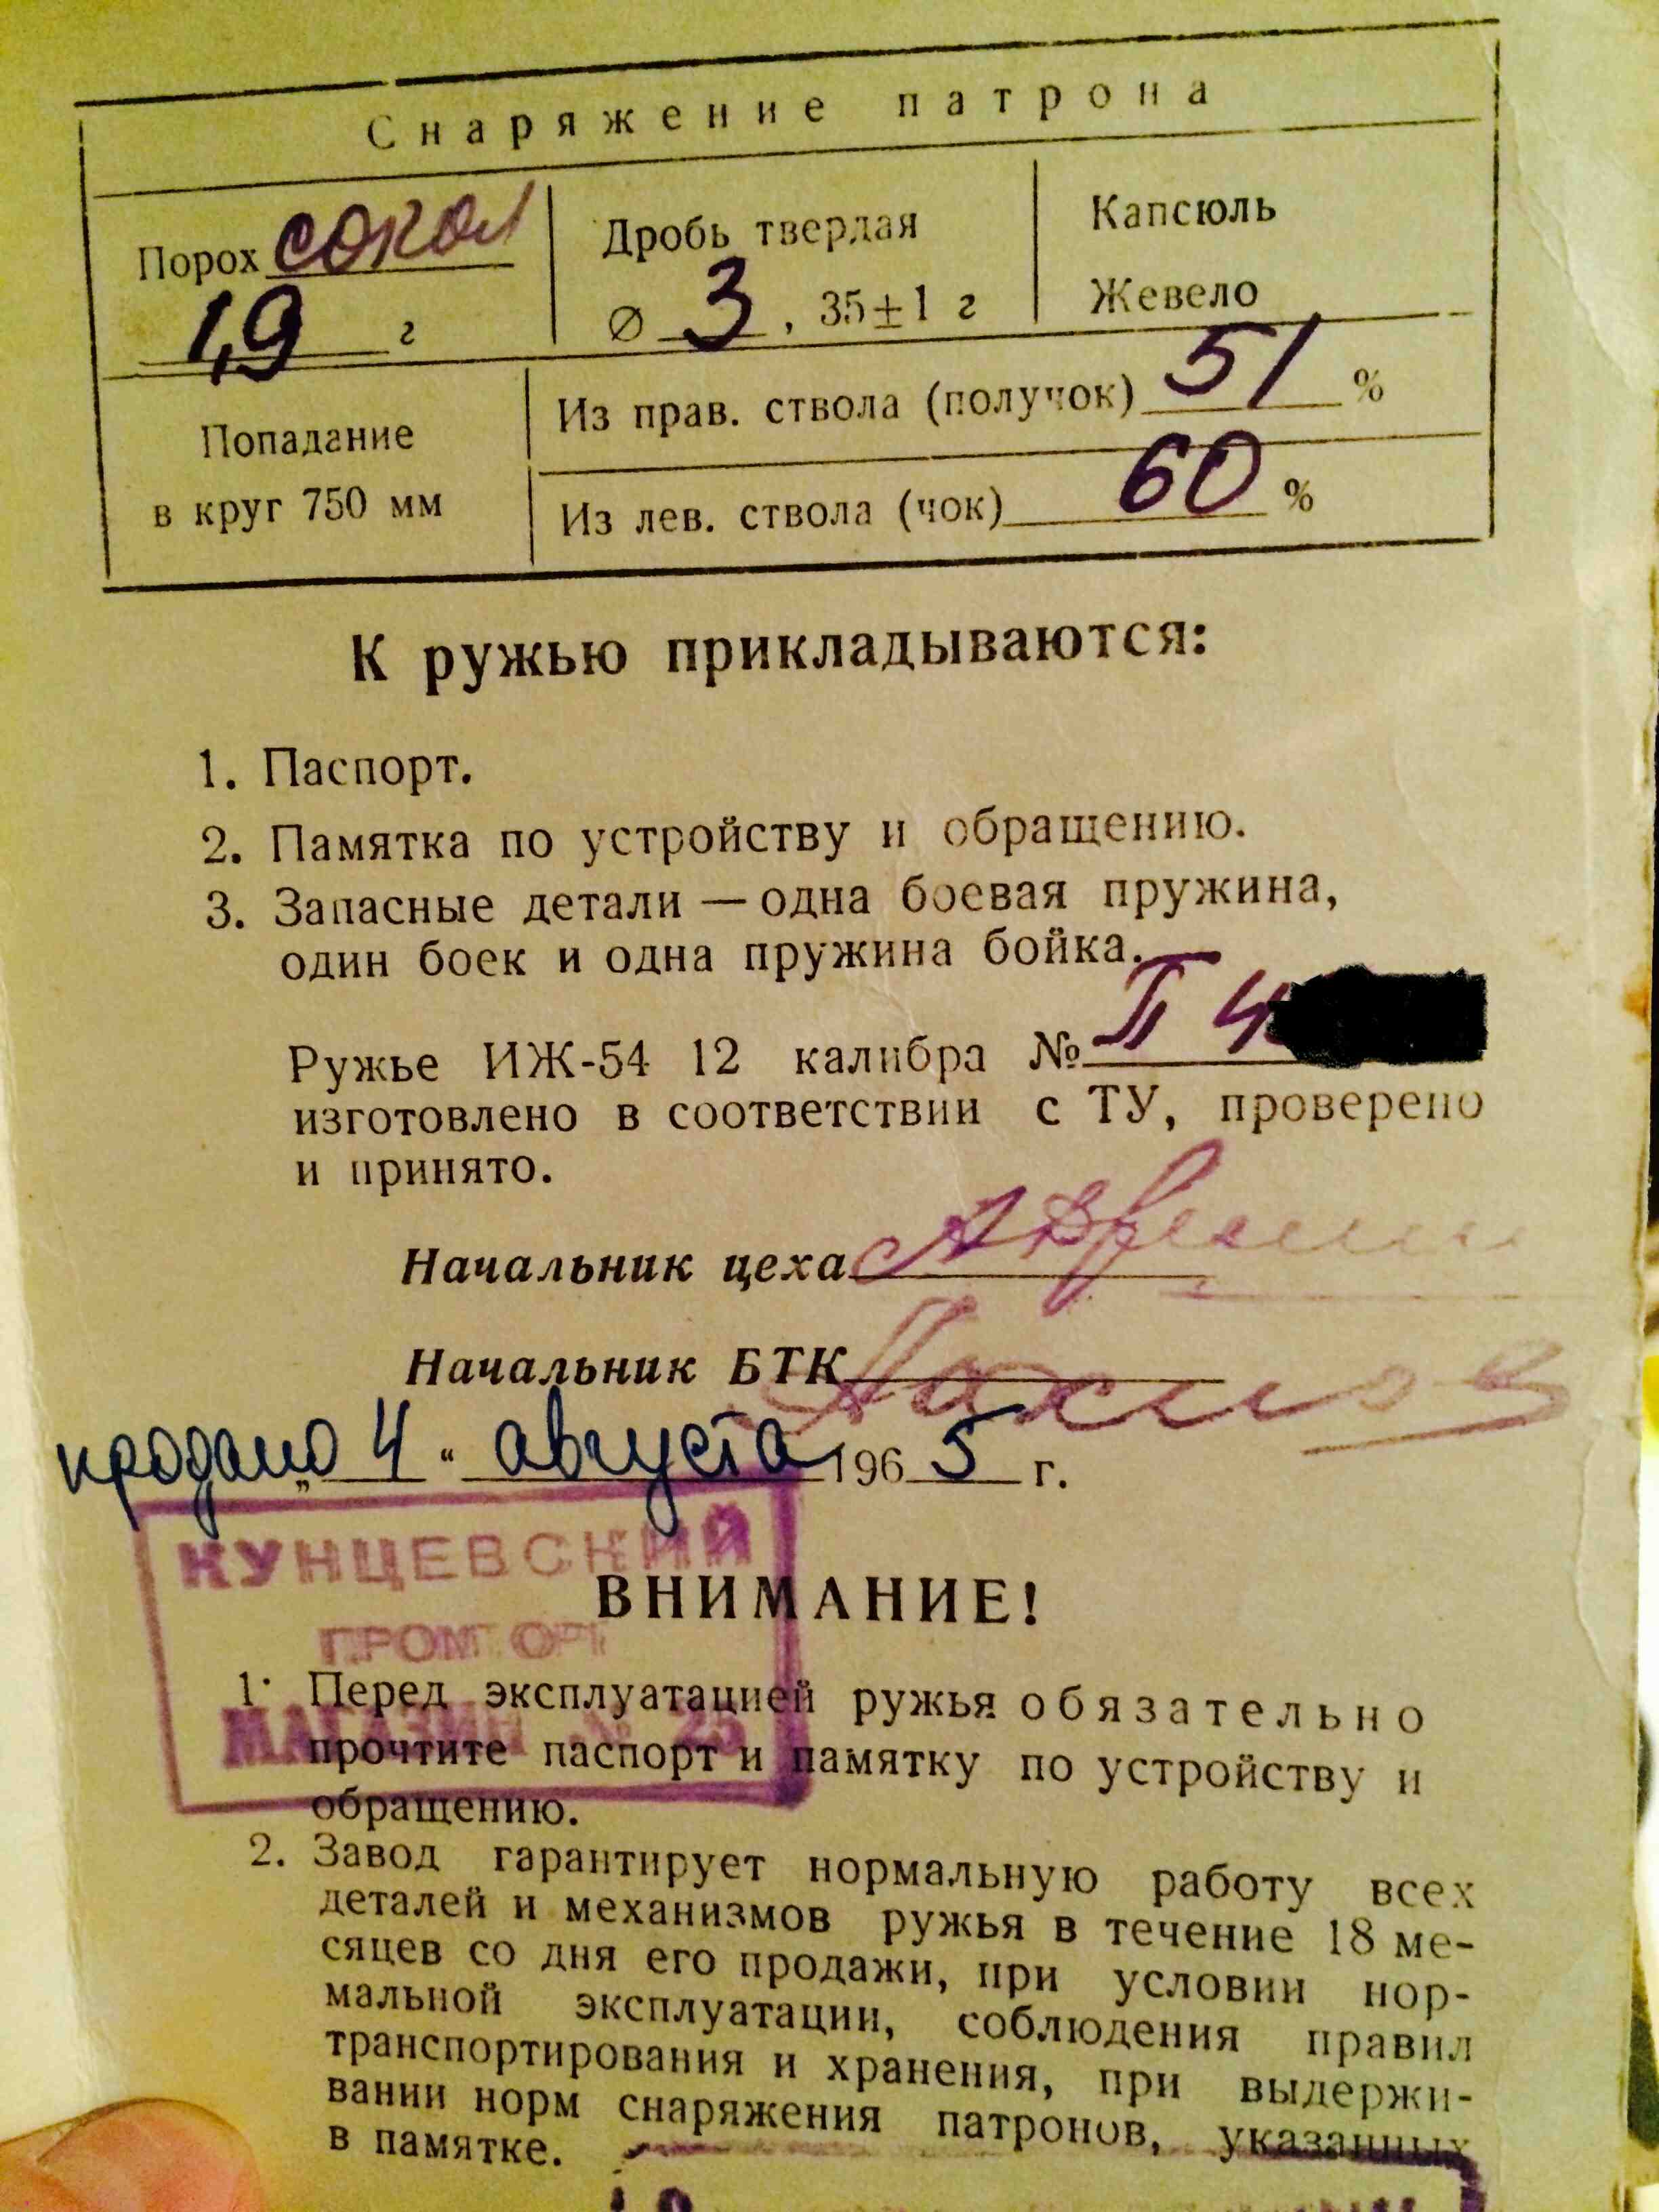 Снаряжение патрона
Порох сокол
1,9 г
Дробь твердая
∅ 3, 35±1 г
Капсюль
Жевело
Попадание
в круг 750 мм
Из прав. ствола (получок) 51 %
Из лев. ствола (чок) 60 %
К ружью прикладываются:
1. Паспорт.
2. Памятка по устройству и обращению.
3. Запасные детали — одна боевая пружина,
один боек и одна пружина бойка.
Ружье ИЖ-54 12 калибра № П 4
изготовлено в соответствии с ТУ, проверено
и принято.
Начальник цеха
Начальник БТК
продано „ 4 “ августа 196 5 г.
КУНЦЕВСКИЙ
ВНИМАНИЕ!
МАГАЗИН № 25
1. Перед эксплуатацией ружья обязательно
прочтите паспорт и памятку по устройству и
обращению.
2. Завод гарантирует нормальную работу всех
деталей и механизмов ружья в течение 18 ме-
сяцев со дня его продажи, при условии нор-
мальной эксплуатации, соблюдения правил
транспортирования и хранения, при выдержи-
вании норм снаряжения патронов, указанных
в памятке.